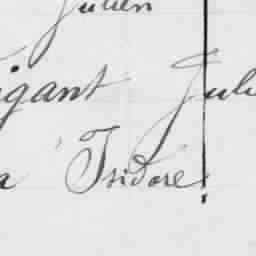 Julien
igant Juli
a Isidore